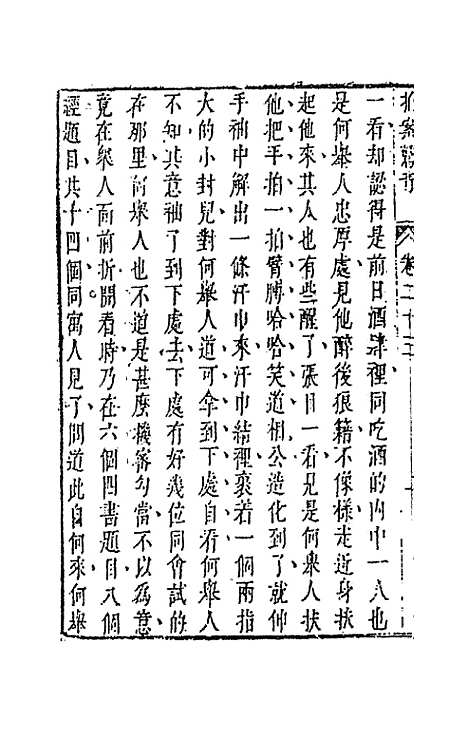 拍案驚奇 卷二十二
一看却認得是前日酒肆裡同吃酒的内中一人也
是何舉人忠厚處見他醉後狼籍不像樣走近身扶
起他來其人也有些醒了張目一看見是何舉人扶
他把手拍一拍臂膊哈哈笑道相公造化到了就伸
手袖中解出一條汗巾來汗巾結裡裹着一個兩指
大的小封兒對何舉人道可拿到下處自看何舉人
不知其意袖了到下處去下處有好幾位同會試的
在那里何舉人也不道是甚麽機密勾當不以爲意
竟在衆人面前拆開看時乃在六個四書題目八個
經題目共十四個同寓人見了問道此自何來何舉